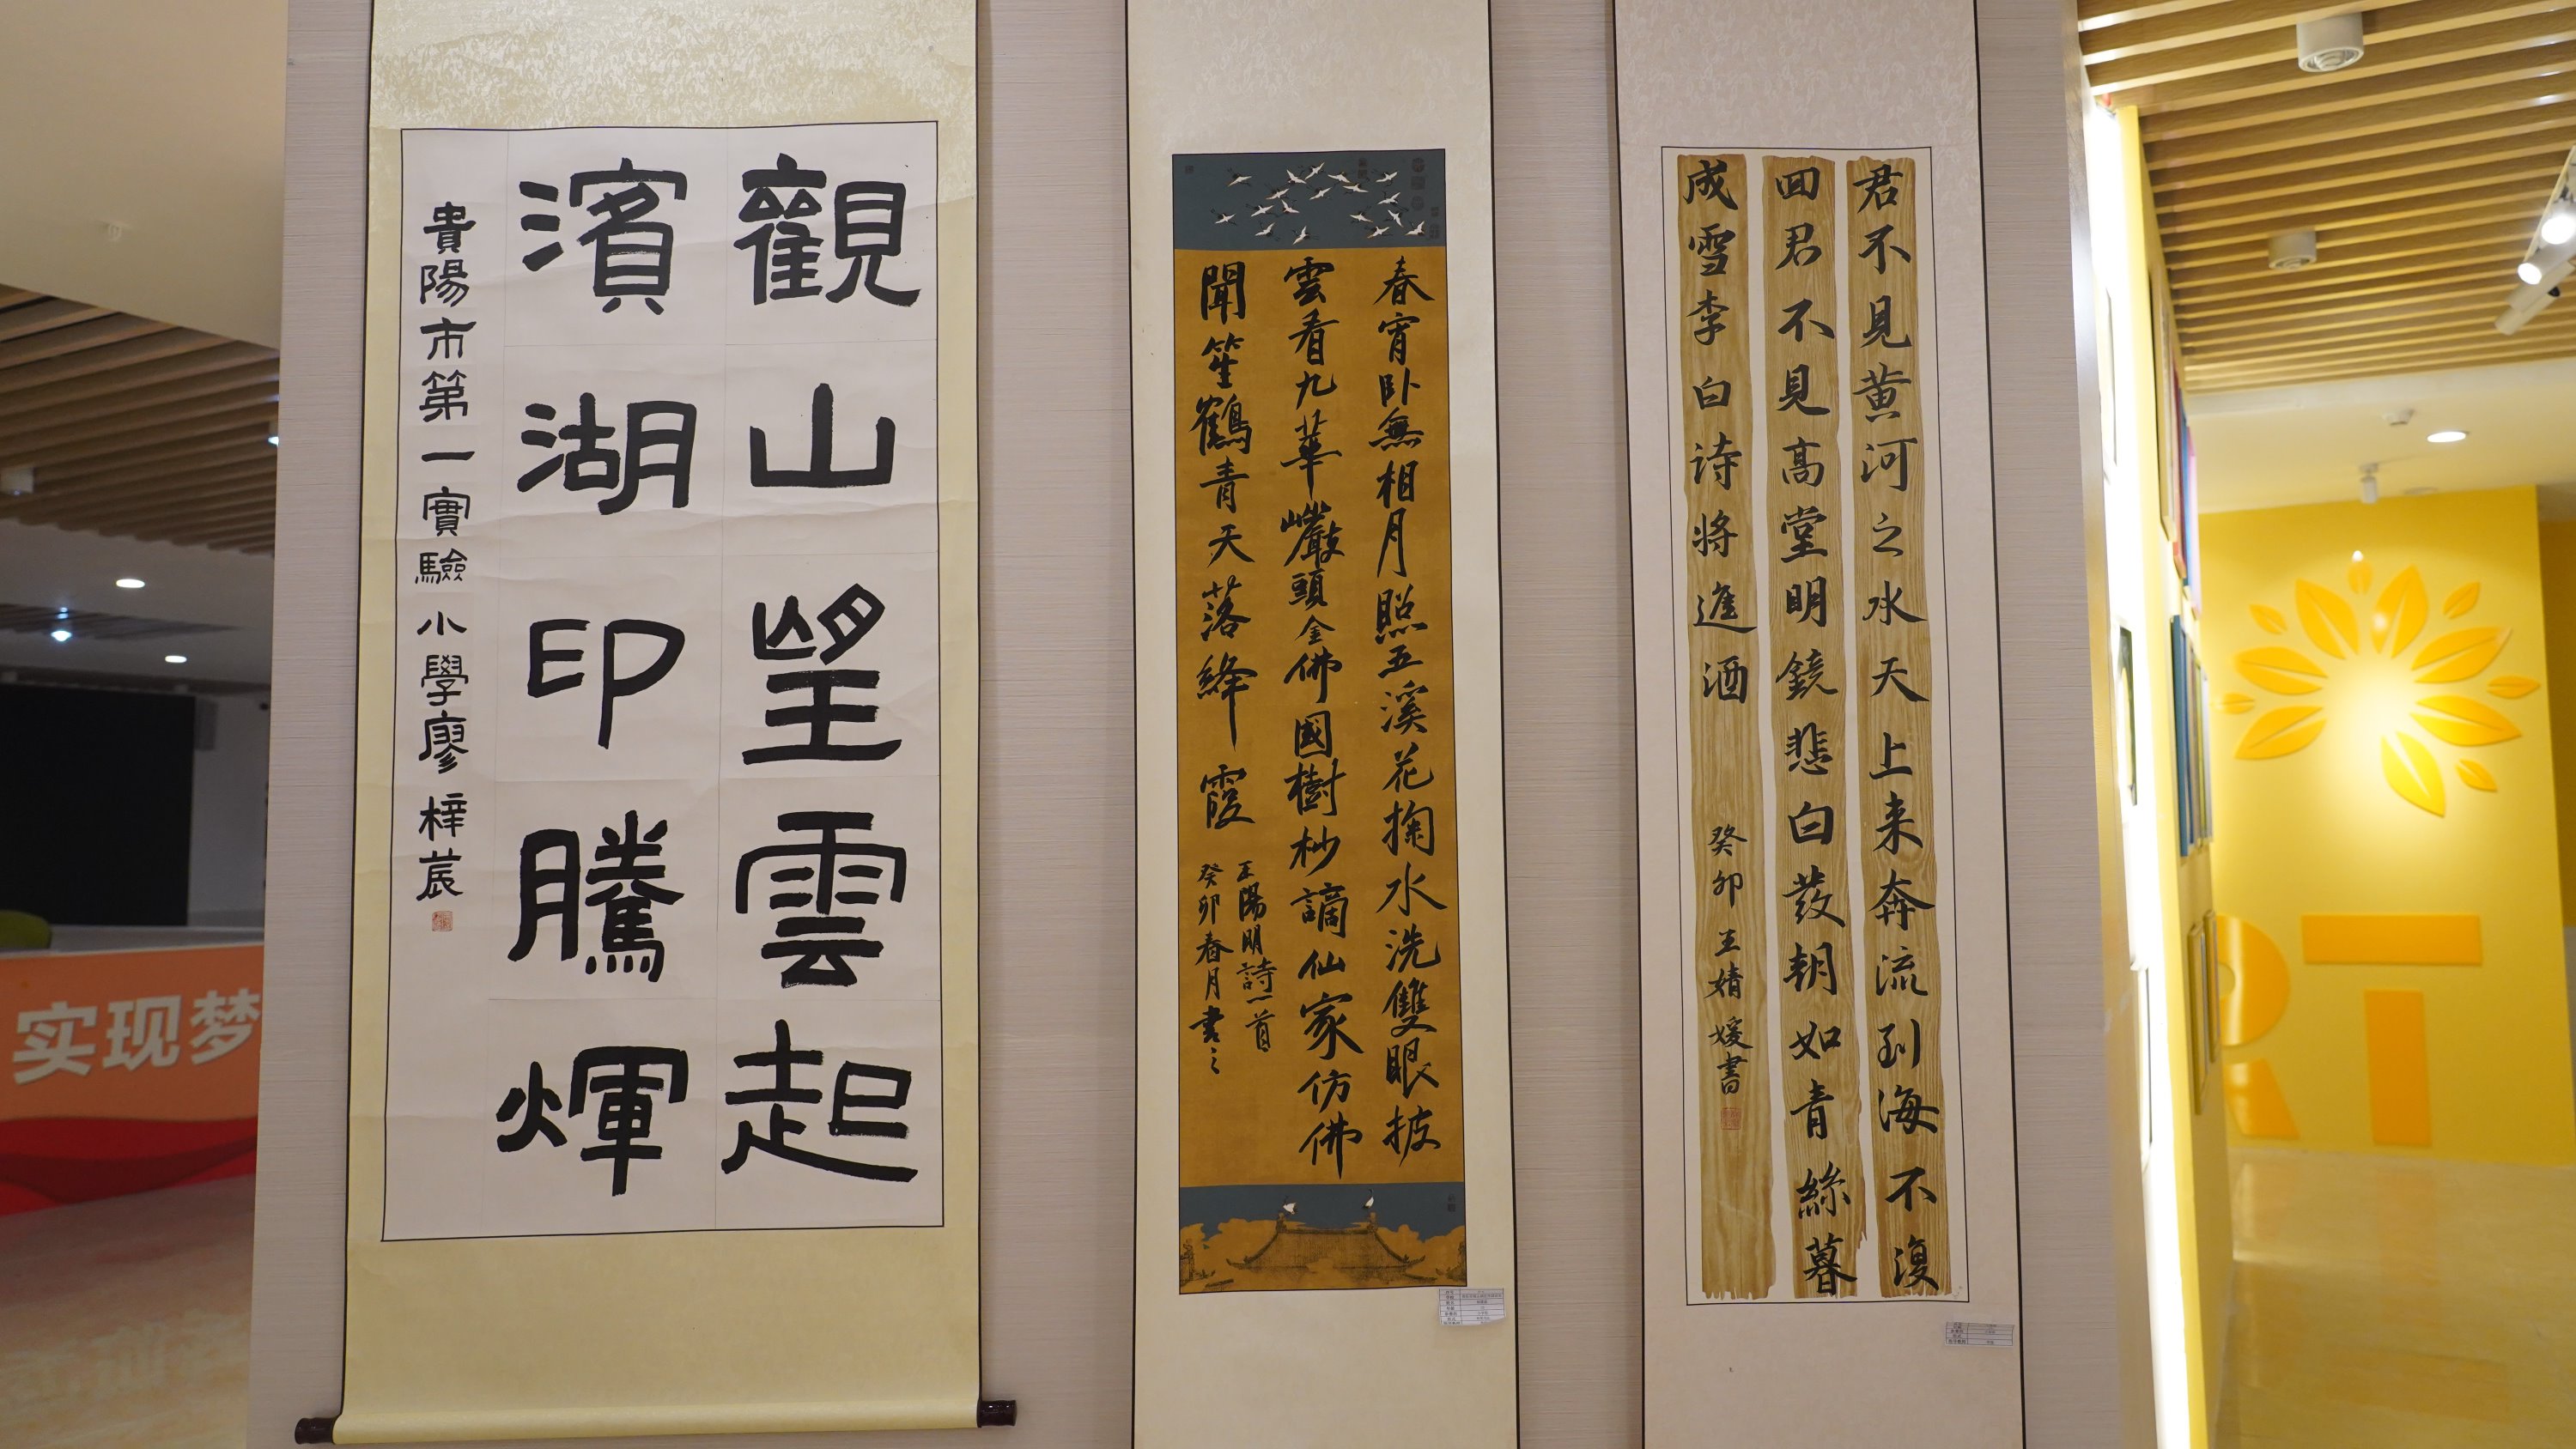 觀山望雲起
濱湖印騰輝
貴陽市第一實驗小學廖梓苠
春宵卧無相月照五溪花掬水洗雙眼披
雲看九華巗頭金佛國樹杪謫仙家仿佛
聞笙鶴青天落絳霞
王陽明詩一首
癸卯春月書之
君不見黄河之水天上来奔流到海不復
回君不見高堂明鏡悲白发朝如青絲暮
成雪李白诗将進酒
癸卯王婧媛書
实现梦
RT